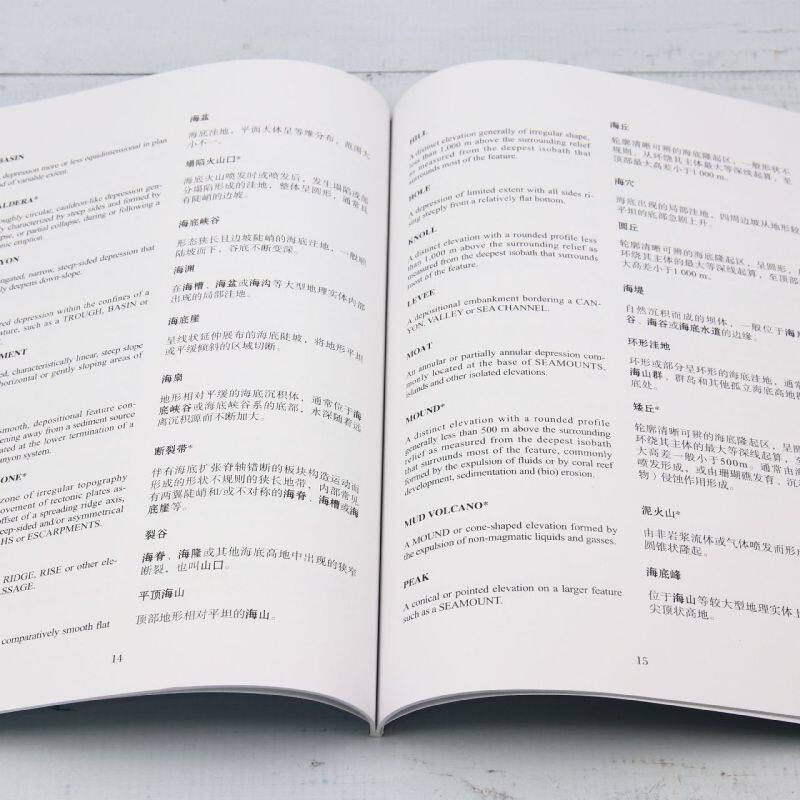 BASIN
depression more or less equidimensional in plan
of variable extent.
CALDERA*
roughly circular, cauldron-like depression gen-
characterized by steep sides and formed by
or partial collapse, during or following a
eruption.
elongated, narrow, steep-sided depression that
deepens down-slope.
depression within the confines of a
feature, such as a TROUGH, BASIN or
characteristically linear, steep slope
horizontal or gently sloping areas of
smooth, depositional feature con-
away from a sediment source
at the lower termination of a
canyon system.
zone of irregular topography
movement of tectonic plates as-
offset of a spreading ridge axis,
steep-sided and/or asymmetrical
or ESCARPMENTS.
RIDGE, RISE or other ele-
comparatively smooth flat
海盆
海底洼地，平面大体呈等维分布，范围大
小不一。
塌陷火山口*
海底火山喷发时或喷发后，发生塌陷或部
分塌陷形成的洼地，整体呈圆形，通常具
有陡峭的边坡。
海底峡谷
形态狭长且边坡陡峭的海底洼地，一般顺
陆坡而下，谷底不断变深。
海渊
在海槽、海盆或海沟等大型地理实体内部
出现的局部洼地。
海底崖
呈线状延伸展布的海底陡坡，将地形平坦
或平缓倾斜的区域切断。
海扇
地形相对平缓的海底沉积体，通常位于海
底峡谷或海底峡谷系的底部，水深随着远
离沉积源而不断加大。
断裂带*
伴有海底扩张脊轴错断的板块构造运动而
形成的形状不规则的狭长地带，内部常见
有两翼陡峭和/或不对称的海脊、海槽或海
底崖等。
裂谷
海脊、海隆或其他海底高地中出现的狭窄
断裂，也叫山口。
平顶海山
顶部地形相对平坦的海山。
14
HILL
A distinct elevation generally of irregular shape,
less than 1,000 m above the surrounding relief
as measured from the deepest isobath that
surrounds most of the feature.
HOLE
A depression of limited extent with all sides ri-
sing steeply from a relatively flat bottom.
KNOLL
A distinct elevation with a rounded profile less
than 1,000 m above the surrounding relief as
measured from the deepest isobath that surrounds
most of the feature.
LEVEE
A depositional embankment bordering a CAN-
YON, VALLEY or SEA CHANNEL.
MOAT
An annular or partially annular depression com-
monly located at the base of SEAMOUNTS,
islands and other isolated elevations.
MOUND*
A distinct elevation with a rounded profile
generally less than 500 m above the surrounding
relief as measured from the deepest isobath
that surrounds most of the feature, commonly
formed by the expulsion of fluids or by coral reef
development, sedimentation and (bio) erosion.
MUD VOLCANO*
A MOUND or cone-shaped elevation formed by
the expulsion of non-magmatic liquids and gasses.
PEAK
A conical or pointed elevation on a larger feature
such as a SEAMOUNT.
海丘
轮廓清晰可辨的海底隆起区，一般形状不
规则，从环绕其主体的最大等深线起算，至
顶部最大高差小于1 000 m。
海穴
海底出现的局部洼地，四周边坡从地形较
平坦的底部急剧上升。
圆丘
轮廓清晰可辨的海底隆起区，呈圆形，从
环绕其主体的最大等深线起算，至顶部
大高差小于1 000 m。
海堤
自然沉积而成的坝体，一般位于海底
谷、海谷或海底水道的边缘。
环形洼地
环形或部分呈环形的海底洼地，通常
海山群、群岛和其他孤立海底高地
底处。
矮丘*
轮廓清晰可辨的海底隆起区，呈圆
环绕其主体的最大等深线起算，至
大高差一般小于500m。通常由
喷发形成，或由珊瑚礁发育、沉
物）侵蚀作用形成。
泥火山*
由非岩浆流体或气体喷发而形成
圆锥状隆起。
海底峰
位于海山等较大型地理实体上
尖顶状高地。
15